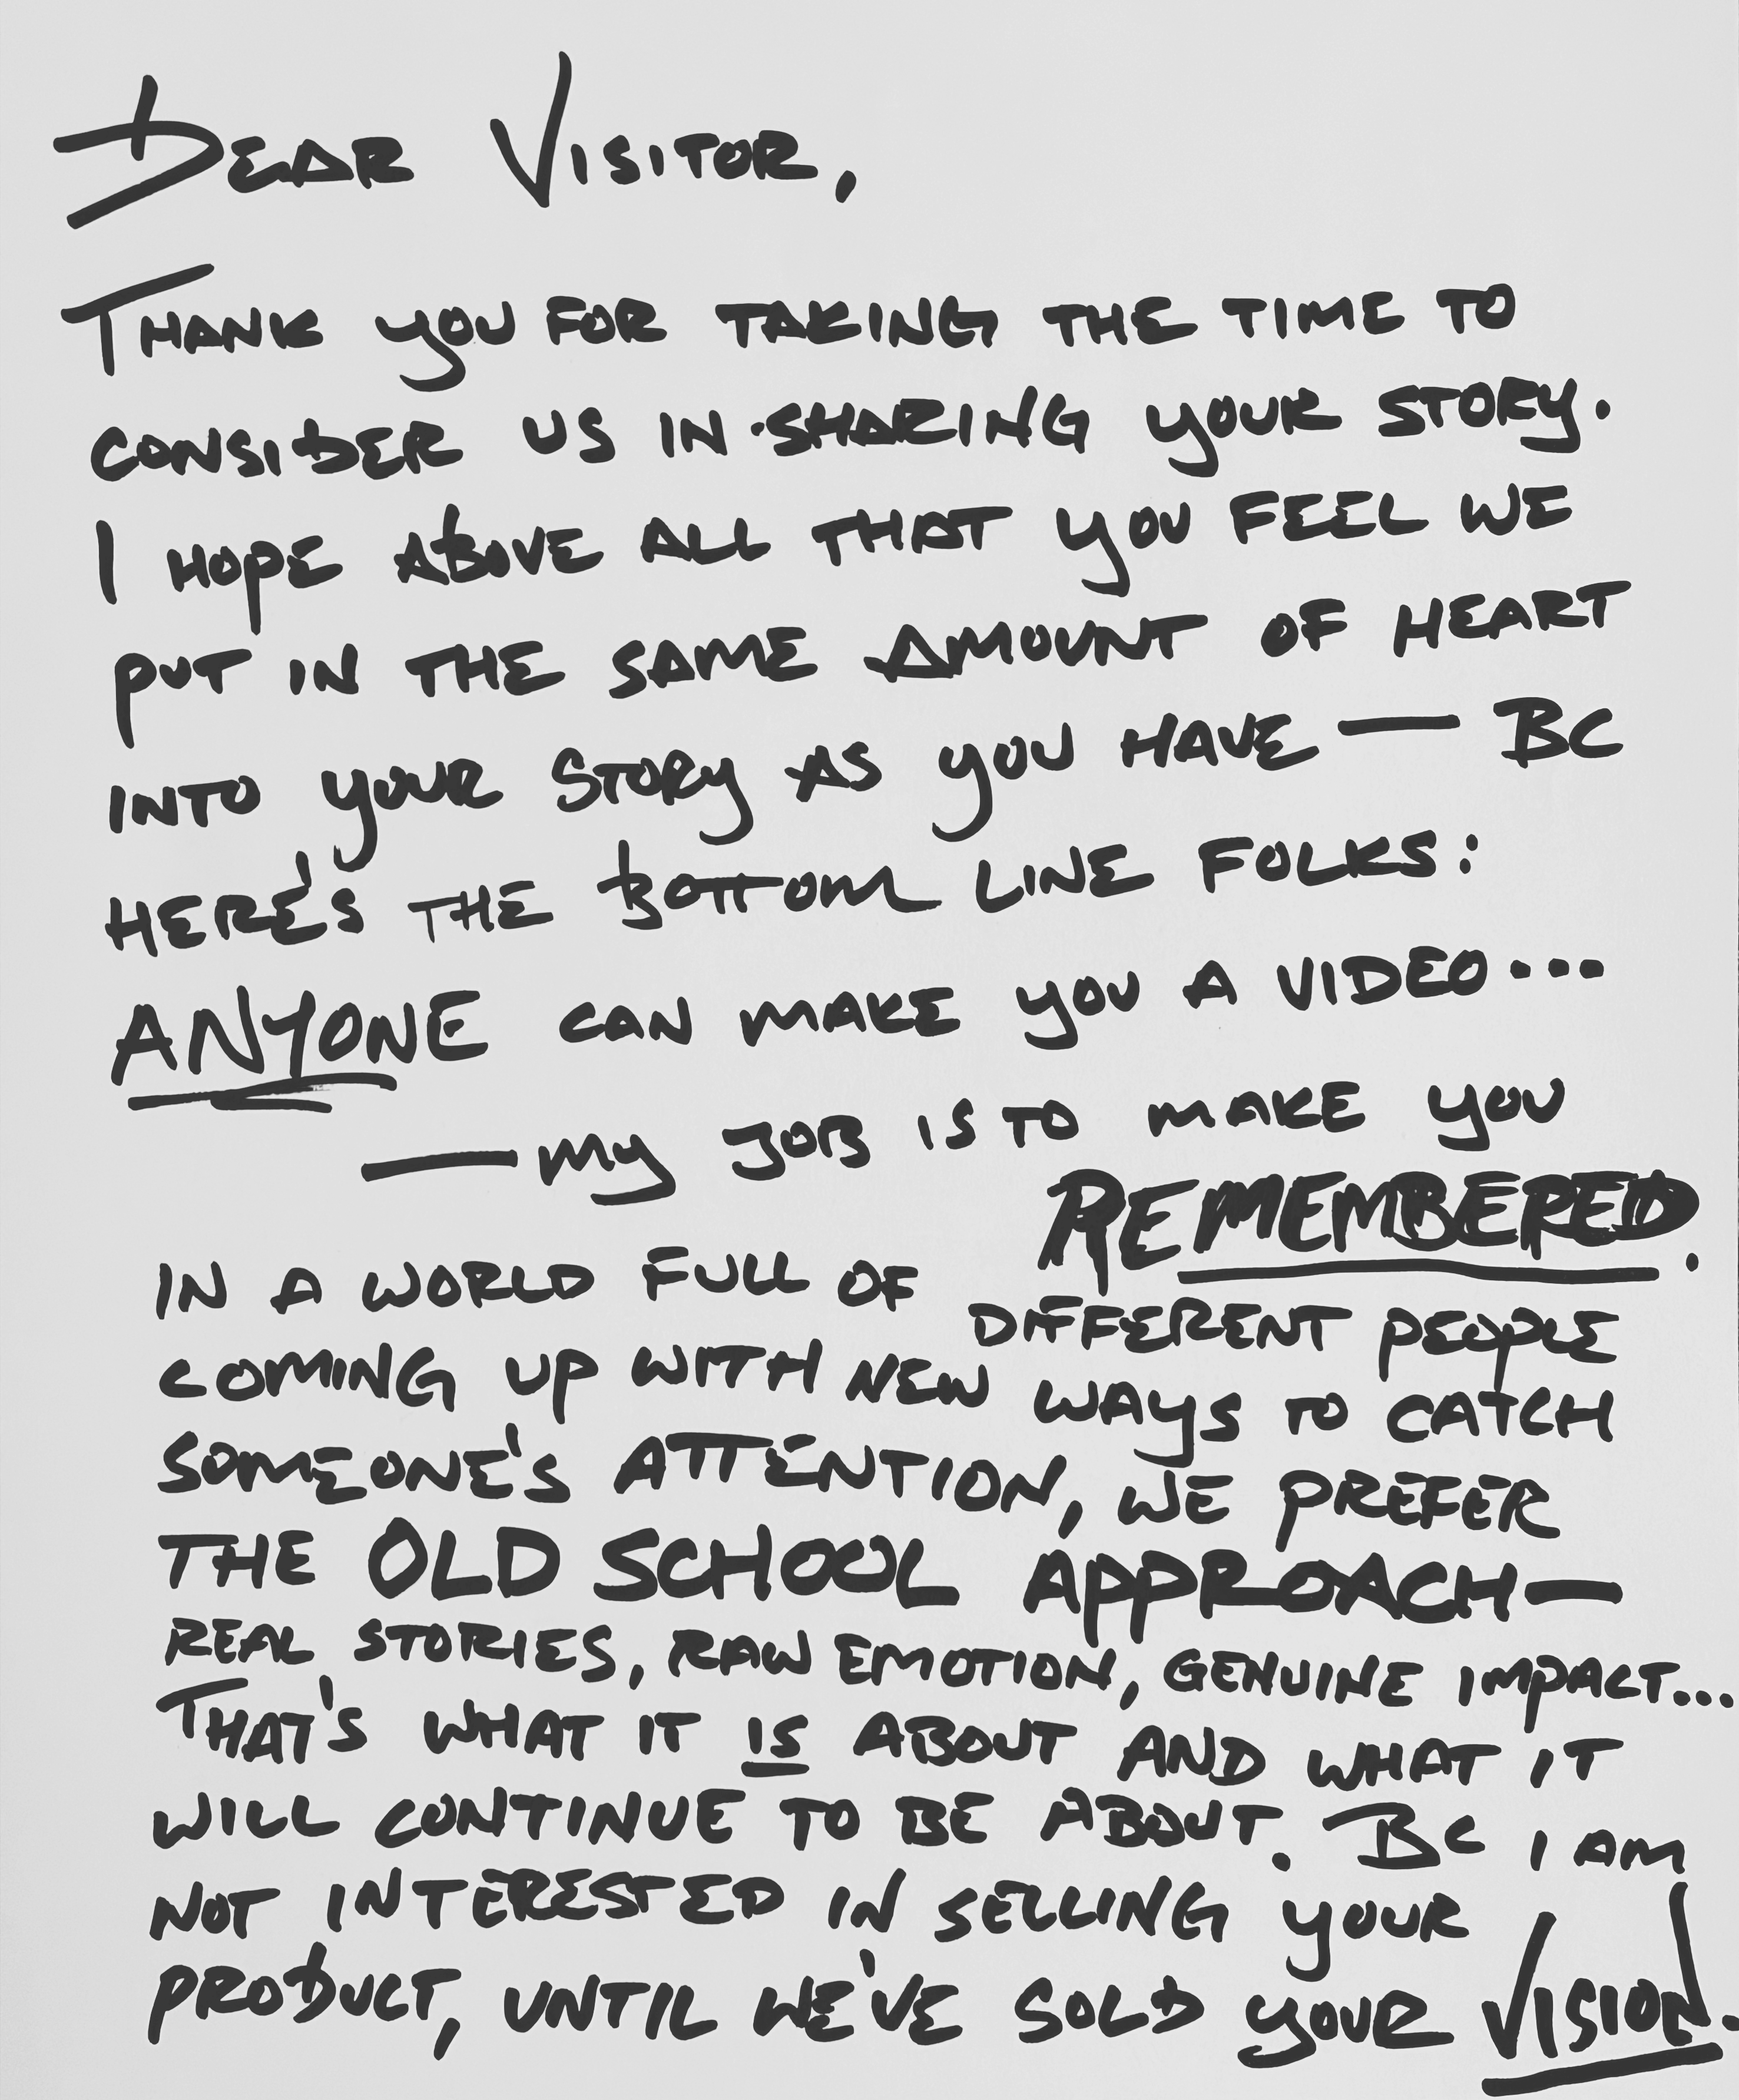 Dear Visitor,
Thank you for taking the time to
consider us in sharing your story.
I hope above all that you feel we
put in the same amount of heart
into your story as you have — BC
here's the bottom line folks:
ANYONE can make you a video...
— my job is to make you
REMEMBERED.
In a world full of different people
coming up with new ways to catch
someone's attention, we prefer
the OLD SCHOOL APPROACH—
real stories, raw emotion, genuine impact...
That's what it is about and what it
will continue to be about. BC I am
not interested in selling your
product, until we've sold your Vision.